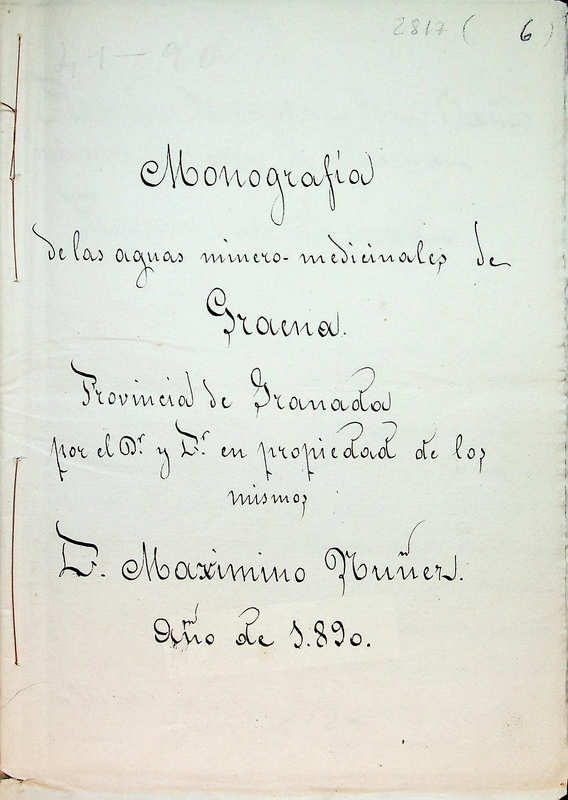 2817 ( 6 )
Monografía
de las aguas minero-medicinales de
Graena.
Provincia de Granada
por el Dr. y Dr. en propiedad de los
mismos
D. Maximino Nuñez.
Año de 1.890.